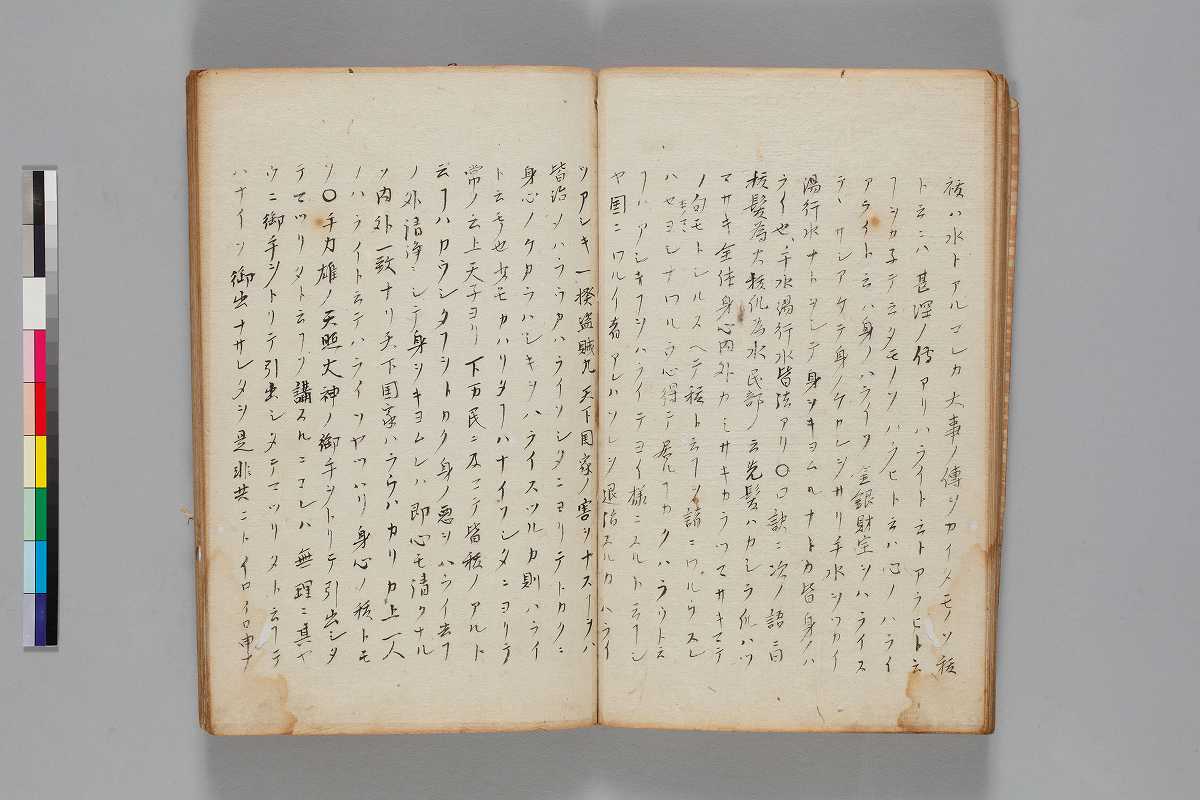 祓ハ水トアルコレカ大事ノ傳ソカイメモノソ祓
トニハ甚深ノ傳アリハライト云トアラヒト云
フシカ子テ云タモノソハラヒト云ハ心ノハライ
アライト云ハ身ノハライソ金銀財宝ヲハライス
テヽサシアケテ身ノケカレヲサリ手水ヲツカイ
湯行水ナトヲシテ身ヲキヨムルナトカ皆身ノハ
ライ也手水湯行水皆法アリ〇口訣ニ次ノ語ニ曰
髪為火為水民部ノ云髪ハカシラハツ
マサキ全体身心内外カミサキカラツマサキマテ
ノ句モトシルスヘテ祓ト云フヲ諸ニワルウスレ
ハセヨシナワルウ心得テ居ルフカクハラウト云
フハアシキフヲハライテヨイ様ニスルト云フシ
ヤ国ニワルイ者アレハソレヲ退治スルカハライ
ソアシキ一揆盗賊凡天下国家ノ害ヲナスーラハ
皆治メハラウカハライソシタニヨリテトカクニ
身心ノケカラハシキヲハライスツルカ則ハライ
ト云モ也少モカハリタフハナイフシタニヨリテ
常ノ云上天子ヨリ下万民ニ及マテ皆祓ノアルト
云フハカウシタフシトカク身ノ悪ヲハライ去フ
ノ外清浄ニシテ身ヲキヨムレハ即心モ清クナル
ソ内外一致ナリ天下国家ハラウハカリカ上一人
ノハライト云テハライソヤツハリ身心ノ祓トモ
ソ〇手力雄ノ天照大神ノ御手ヲトリテ引出シタ
テマツリタト云フヲ講スルニコレハ無理ニ其ヤ
ウニ御手ヲトリテ引出シタテマツリタト云フテ
ハナイソ御出ナサレタシ是非共ニトイロイロ申ナ